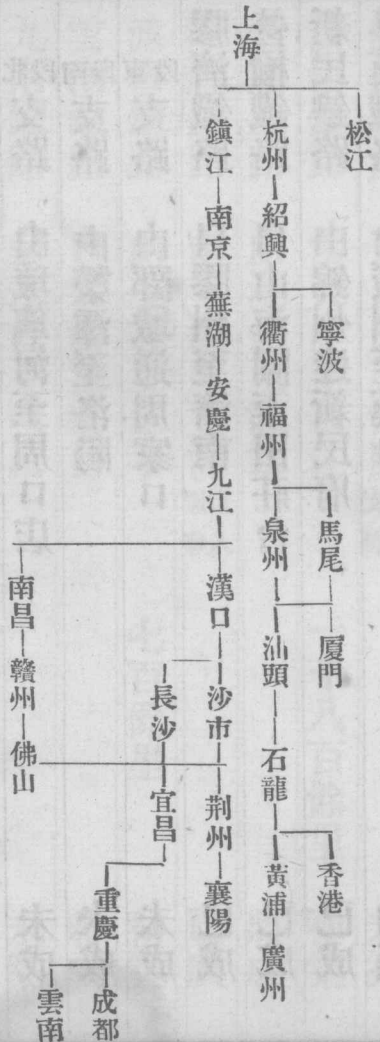 上海
松江
杭州—紹興—衢州—福州—泉州—汕頭—石龍—黃浦—廣州
寧波
馬尾—厦門
香港
鎮江—南京—蕪湖—安慶—九江—漢口—沙市—荆州—襄陽
長沙—宜昌
重慶—成都
雲南
南昌—贛州—佛山